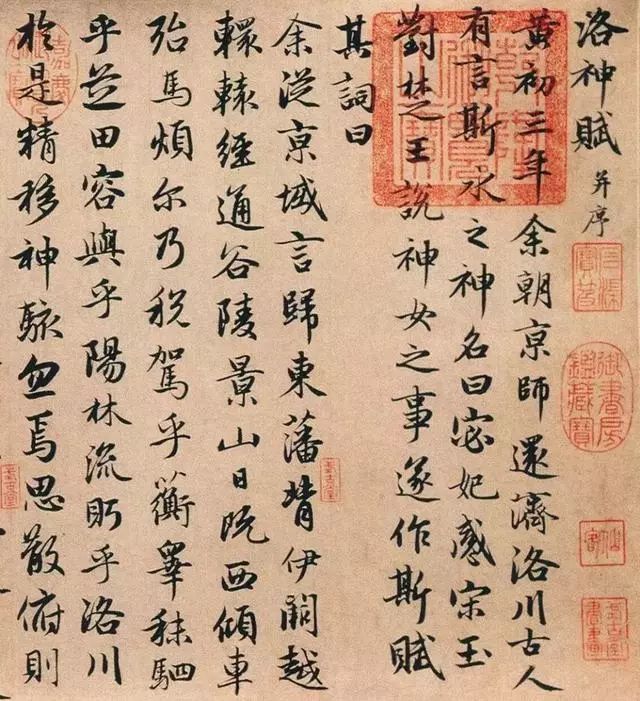 洛神賦 并序
黃初三年余朝京師還濟洛川古人
有言斯水之神名曰宓妃感宋玉
對楚王說神女之事遂作斯賦
其詞曰
余從京域言歸東藩背伊闕越
轘轅經通谷陵景山日既西傾車
殆馬煩尔乃稅駕乎蘅皋秣駟
乎芝田容與乎陽林流眄乎洛川
於是精移神駭忽焉思散俯則
石渠寶笈
御書房鑑藏寶